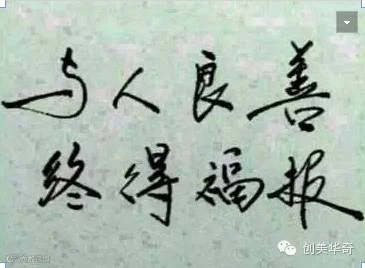 与人良善
终得福报
创美华奇